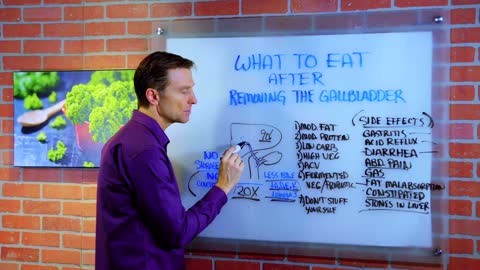 WHAT TO EAT
AFTER
REMOVING THE GALLBLADDER
NO
STORAGE
NO
90%
20X
LESS BILE
1) MOD FAT
2) MOD PROTEIN
3) LOW CARB
4) HIGH VEG
5) ACV
6) FERMENTED
VEG/PROBIOTIC
7) DON'T STUFF
YOURSELF
(SIDE EFFECTS)
GASTRITIS
ACID REFLUX
DIARRHEA
ABD PAIN
GAS
FAT MALABSORPTION
CONSTIPATED
STONES IN LIVER